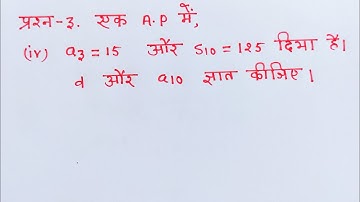 प्रश्न-३. एक A.P में,
(iv) a₃ = 15 और S₁₀ = 125 दिया हैं।
d और a₁₀ ज्ञात कीजिए।